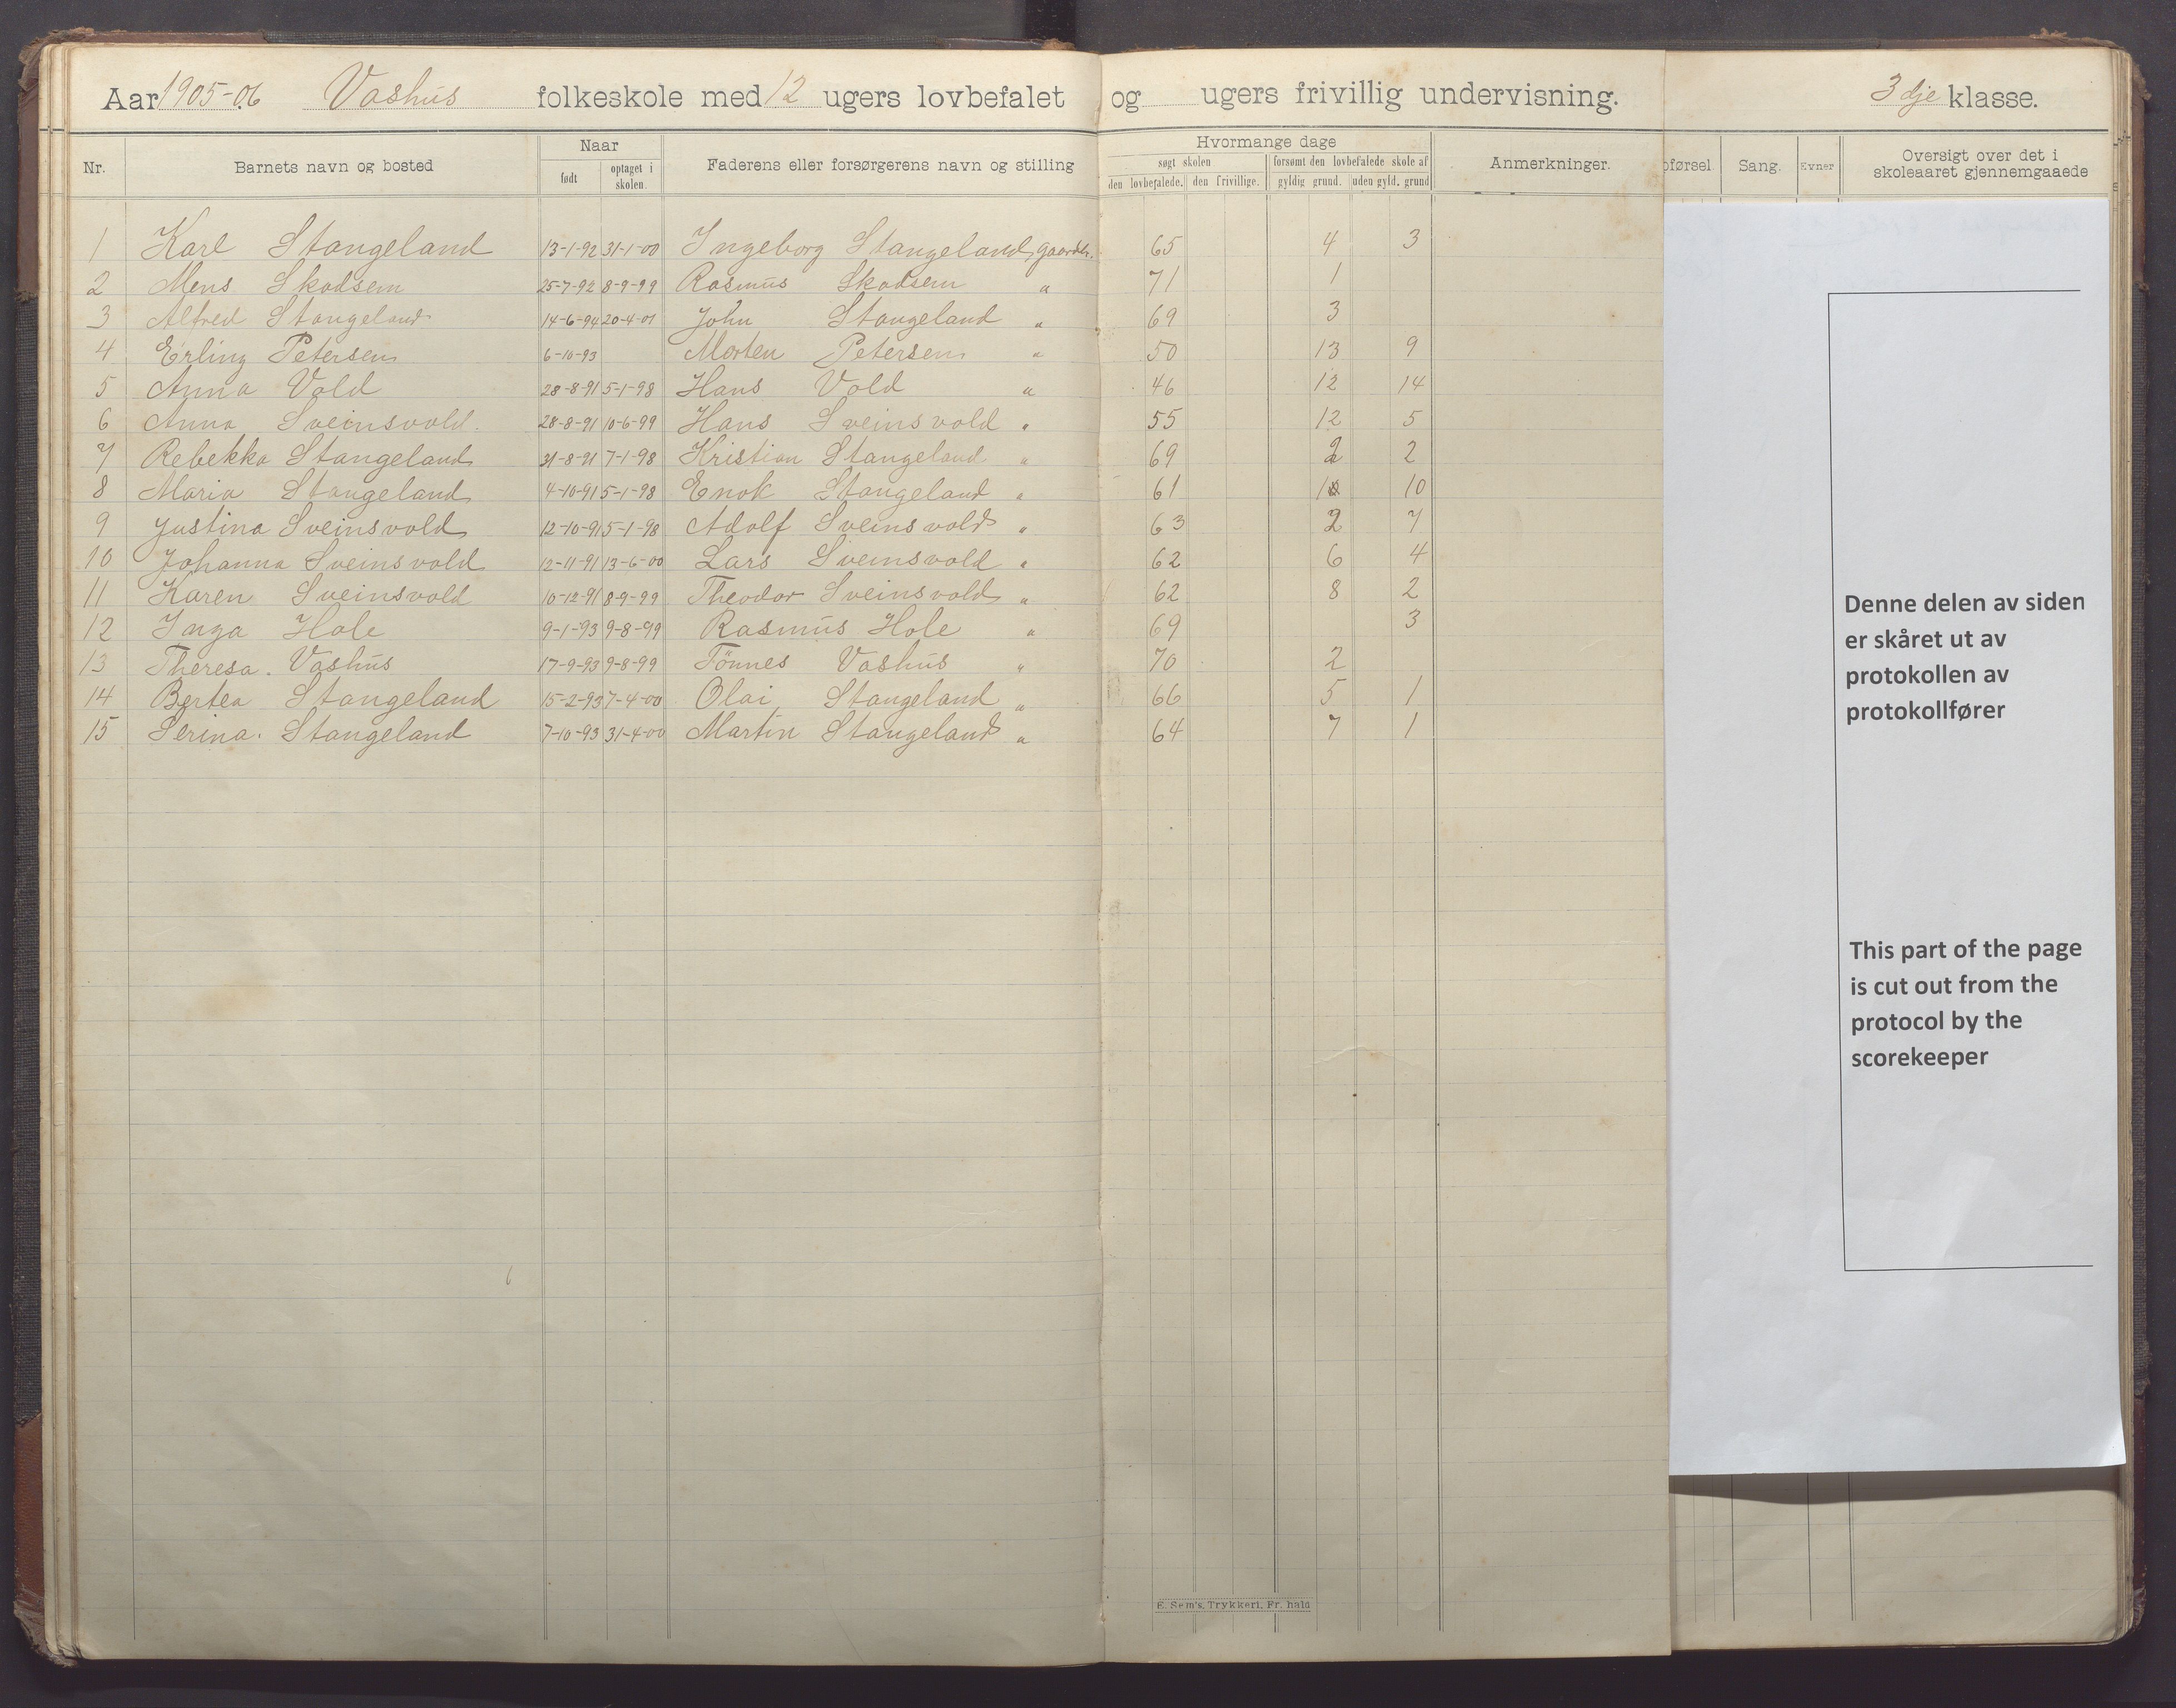 Aar 1905-06 Vashus folkeskole med 12 ugers lovbefalet og ugers frivillig undervisning. 3dje klasse.
Nr. Barnets navn og bosted Naar født optaget i skolen. Faderens eller forsørgerens navn og stilling Hvormange dage søgt skolen den lovbefalede. den frivillige. forsømt den lovbefalede skole af gyldig grund. uden gyld. grund Anmerkninger. pførsel Sang. Evner Oversigt over det i skoleaaret gjennemgaaede
1 Karl Stangeland 13-1-92 31-1-00 Ingeborg Stangeland gaardbr. 65 4 3
2 Mens Skadsem 25-7-92 8-9-99 Rasmus Skadsem " 71 1
3 Alfred Stangeland 14-6-94 20-4-01 John Stangeland " 69 3
4 Erling Petersen 6-10-93 Morten Petersen " 50 13 9
5 Anna Vold 28-8-91 5-1-98 Hans Vold " 46 12 14
6 Anna Sveinsvold. 28-8-91 10-6-99 Hans Sveinsvold " 55 12 5
7 Rebekka Stangeland 31-8-91 7-1-98 Kristian Stangeland " 69 2 2
8 Maria Stangeland 4-10-91 5-1-98 Enok Stangeland " 61 10
9 Justina Sveinsvold 12-10-91 5-1-98 Adolf Sveinsvold " 63 2 7
10 Johanna Sveinsvold 12-11-91 13-6-00 Lars Sveinsvold " 62 6 4
11 Karen Sveinsvold 10-12-91 8-9-99 Theodor Sveinsvold " 62 8 2
12 Inga Hole 9-1-93 9-8-99 Rasmus Hole " 69 3
13 Theresa. Vashus 17-9-93 9-8-99 Tönnes Vashus " 70 2
14 Bertea Stangeland 15-2-93 7-4-00 Olai Stangeland " 66 5 1
15 Serina. Stangeland 7-10-93 31-4-00 Martin Stangeland " 64 7 1
Denne delen av siden
er skåret ut av
protokollen av
protokollfører
This part of the page
is cut out from the
protocol by the
scorekeeper
E. Sem's, Trykkeri, Fr. hald